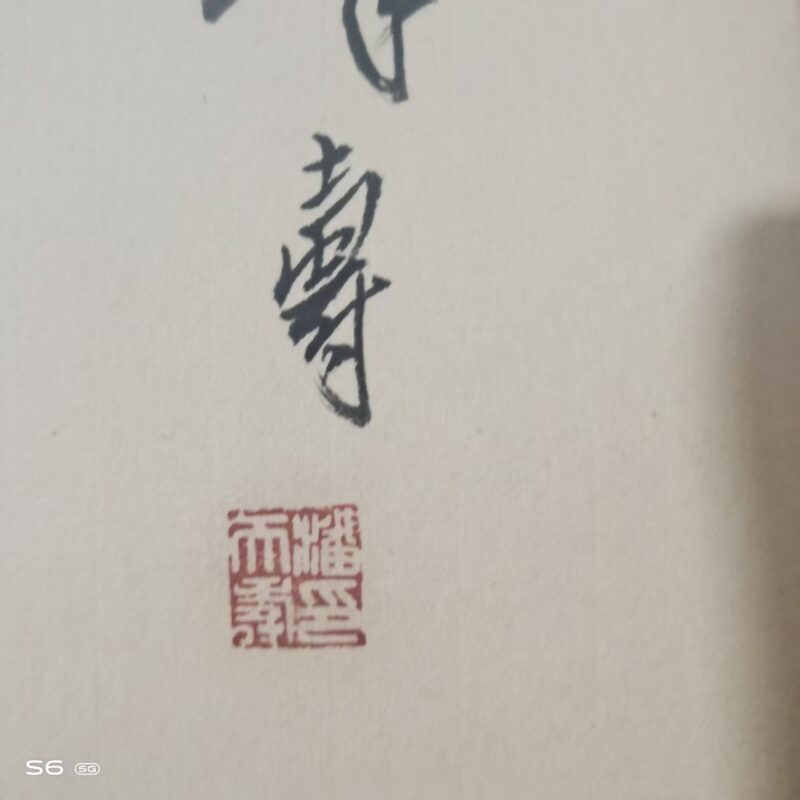 壽
潘印
天壽
S6 5G